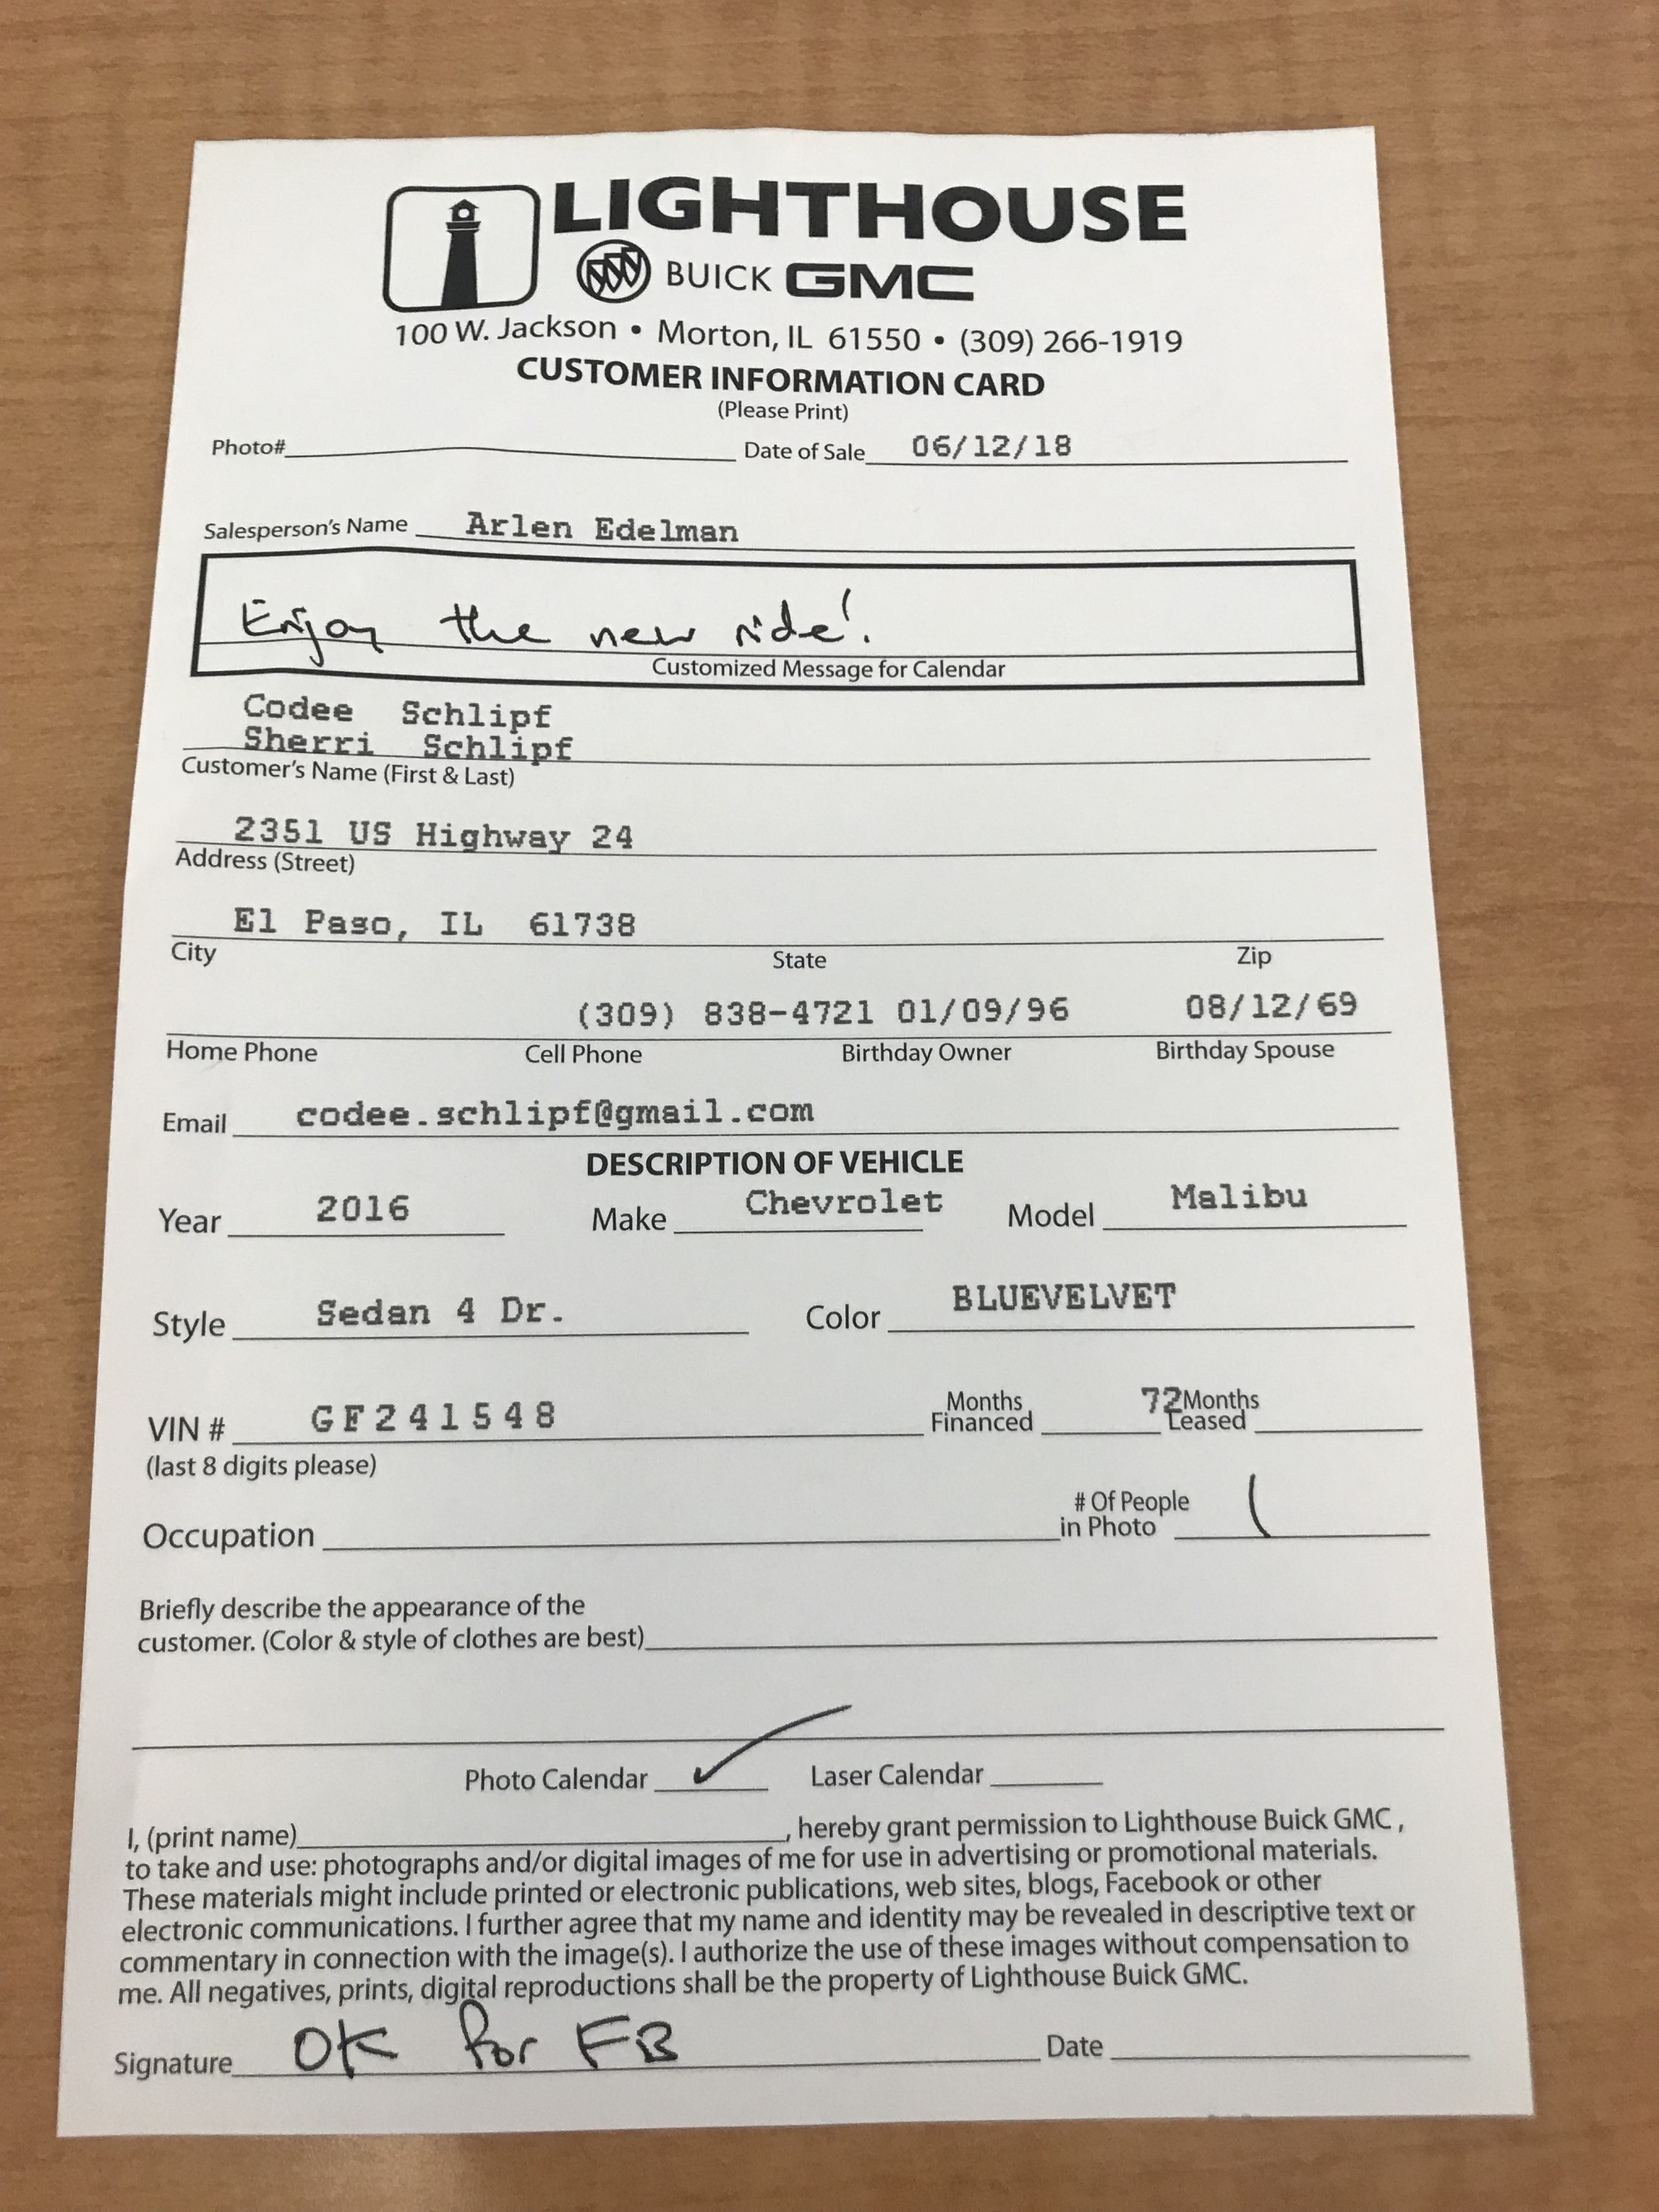 LIGHTHOUSE
BUICK GMC
100 W. Jackson • Morton, IL 61550 • (309) 266-1919
CUSTOMER INFORMATION CARD
(Please Print)
Photo# Date of Sale 06/12/18
Salesperson's Name Arlen Edelman
Enjoy the new ride!
Customized Message for Calendar
Codee Schlipf
Sherri Schlipf
Customer's Name (First & Last)
2351 US Highway 24
Address (Street)
El Paso, IL 61738
City State Zip
(309) 838-4721 01/09/96 08/12/69
Home Phone Cell Phone Birthday Owner Birthday Spouse
Email codee.schlipf@gmail.com
DESCRIPTION OF VEHICLE
Year 2016 Make Chevrolet Model Malibu
Style Sedan 4 Dr. Color BLUEVELVET
VIN # GF241548 Months Financed 72 Months Leased
(last 8 digits please)
Occupation # Of People in Photo 1
Briefly describe the appearance of the
customer. (Color & style of clothes are best)
Photo Calendar ✓ Laser Calendar
I, (print name) , hereby grant permission to Lighthouse Buick GMC ,
to take and use: photographs and/or digital images of me for use in advertising or promotional materials.
These materials might include printed or electronic publications, web sites, blogs, Facebook or other
electronic communications. I further agree that my name and identity may be revealed in descriptive text or
commentary in connection with the image(s). I authorize the use of these images without compensation to
me. All negatives, prints, digital reproductions shall be the property of Lighthouse Buick GMC.
Signature OK for FB Date